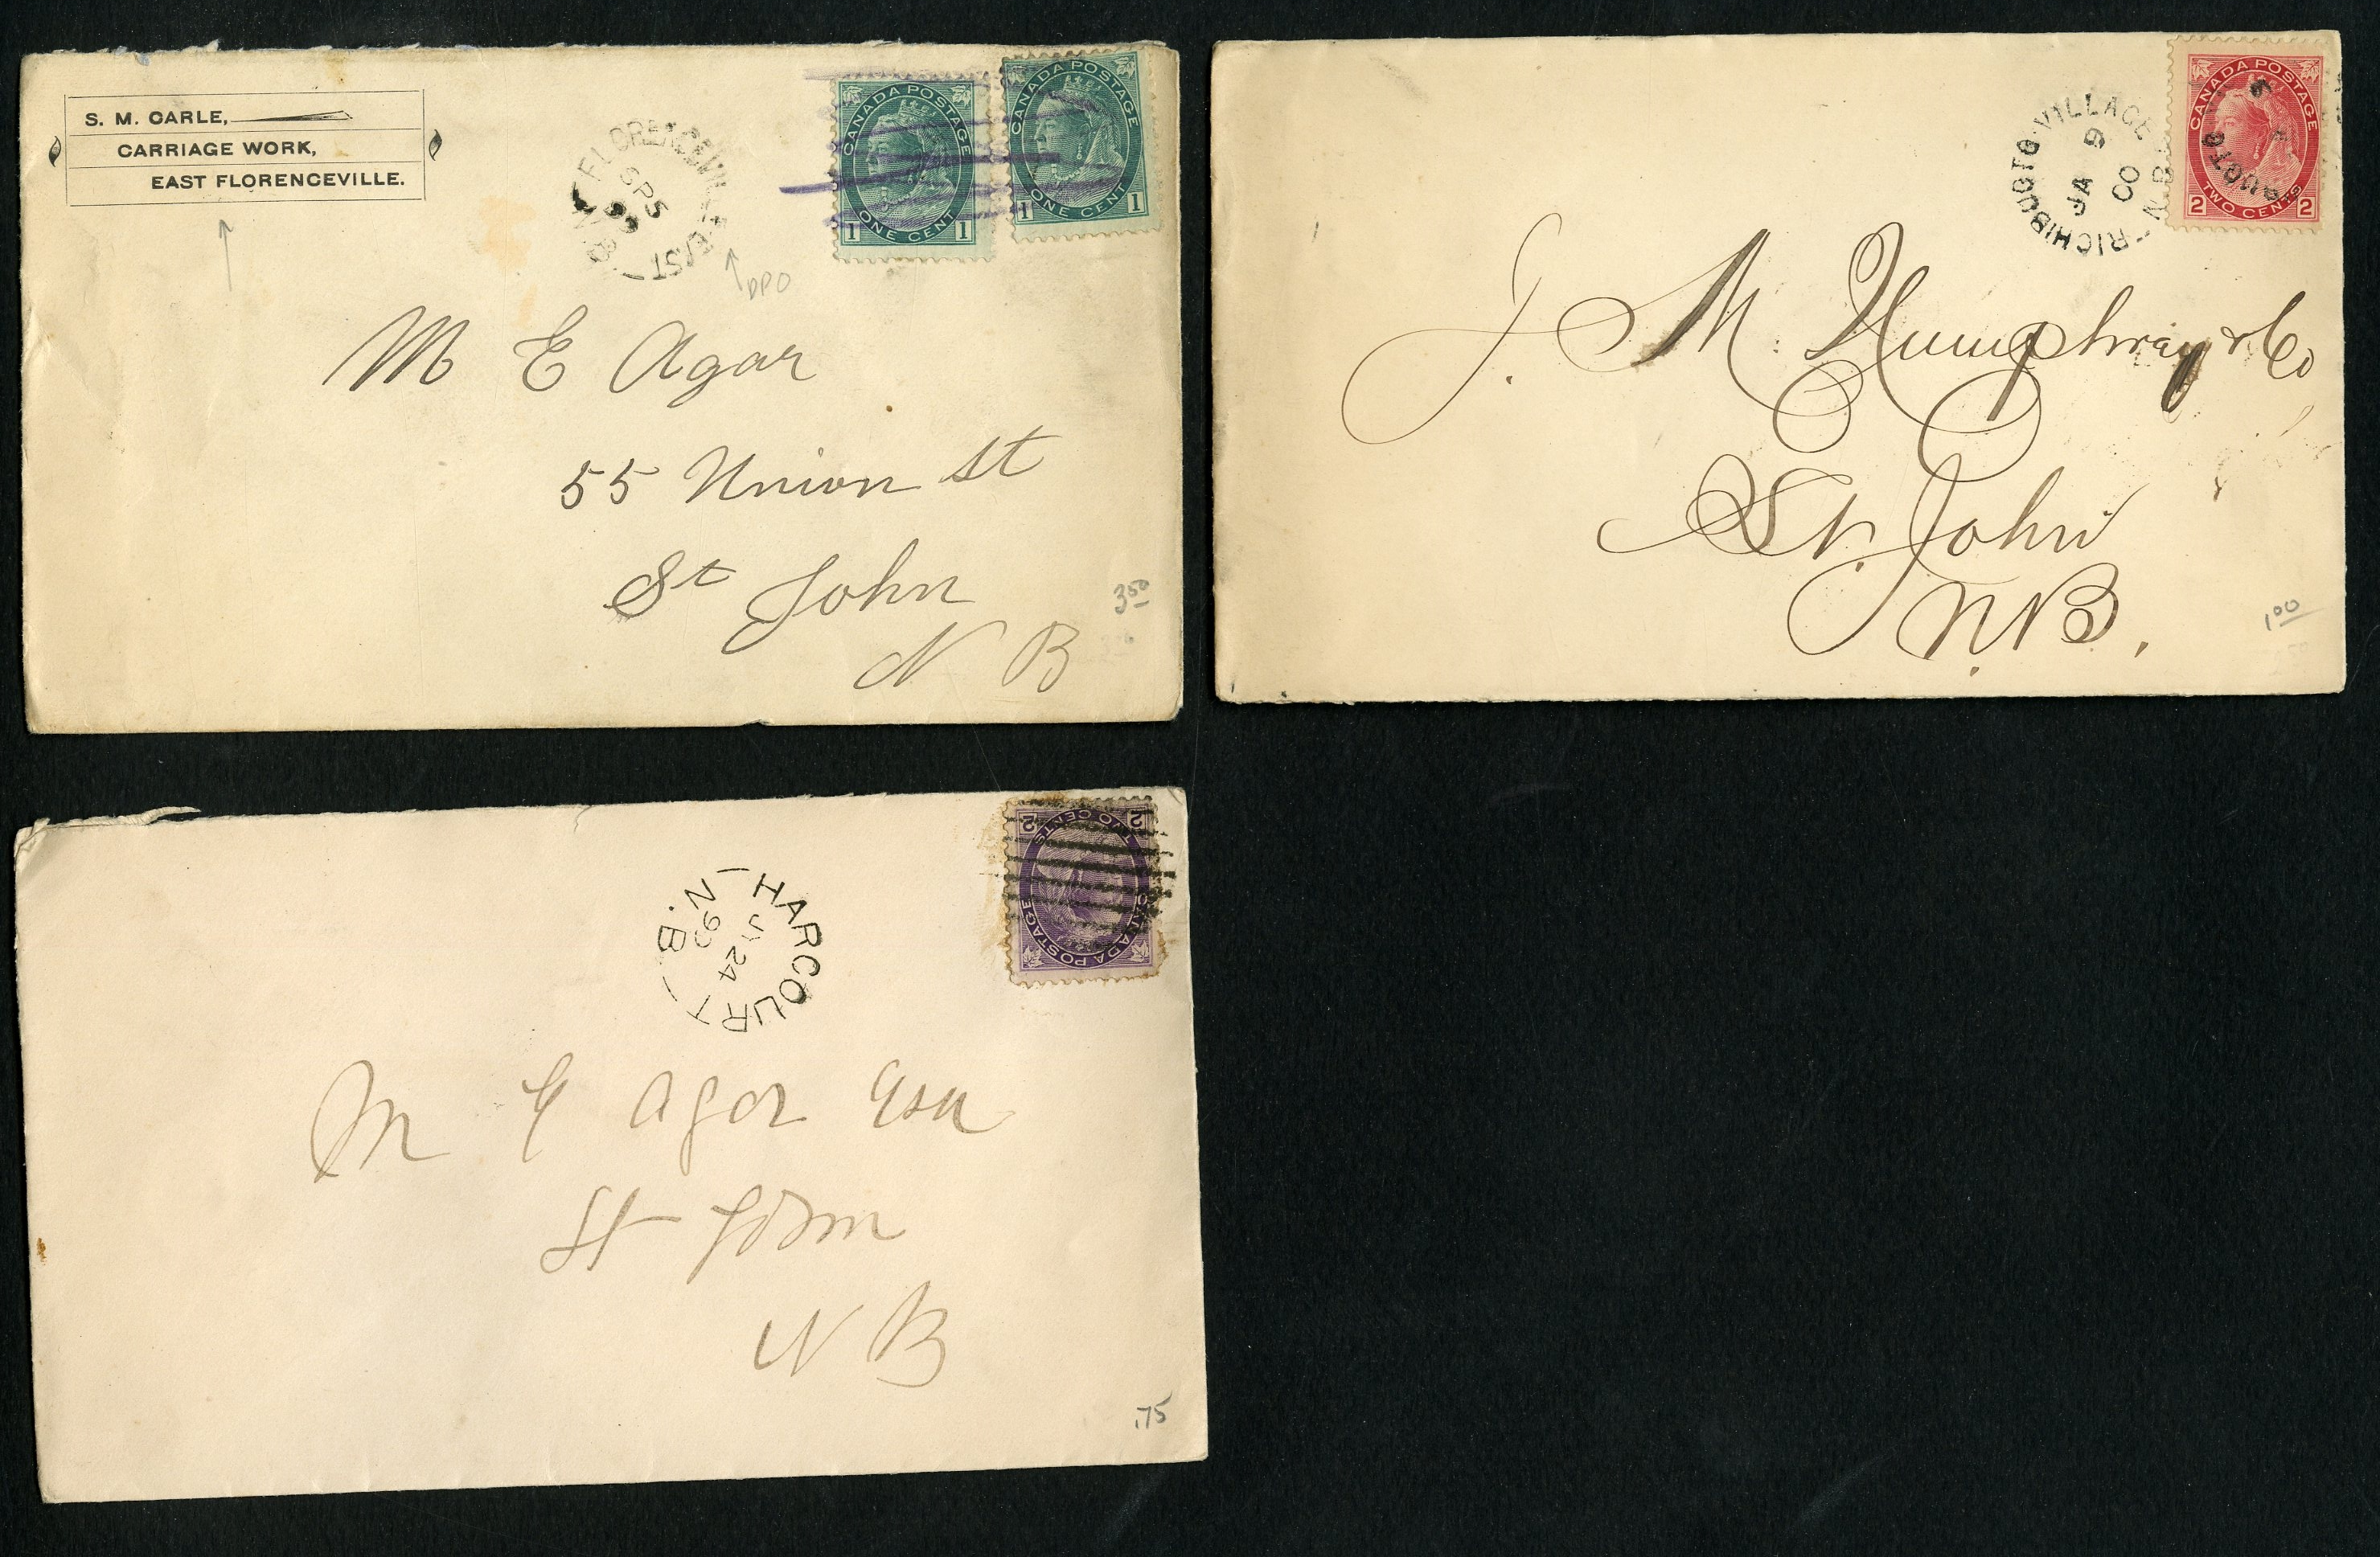 S. M. CARLE,
CARRIAGE WORK,
EAST FLORENCEVILLE.
FLORENCEVILLE EAST
SP 5
99
N.B.
DPO
CANADA POSTAGE
ONE CENT
1 1
CANADA POSTAGE
ONE CENT
1 1
M E Agar
55 Union St
St John
N B
3 50
RICHIBUCTO-VILLAGE
JA 9
00
N.B.
CANADA POSTAGE
TWO CENTS
2 2
J. M. Humphrey & Co
St. John
N.B.
1 00
HARCOURT
24
99
N.B
CANADA POSTAGE
TWO CENTS
2 2
M E Agar Esq
St John
N B
.75